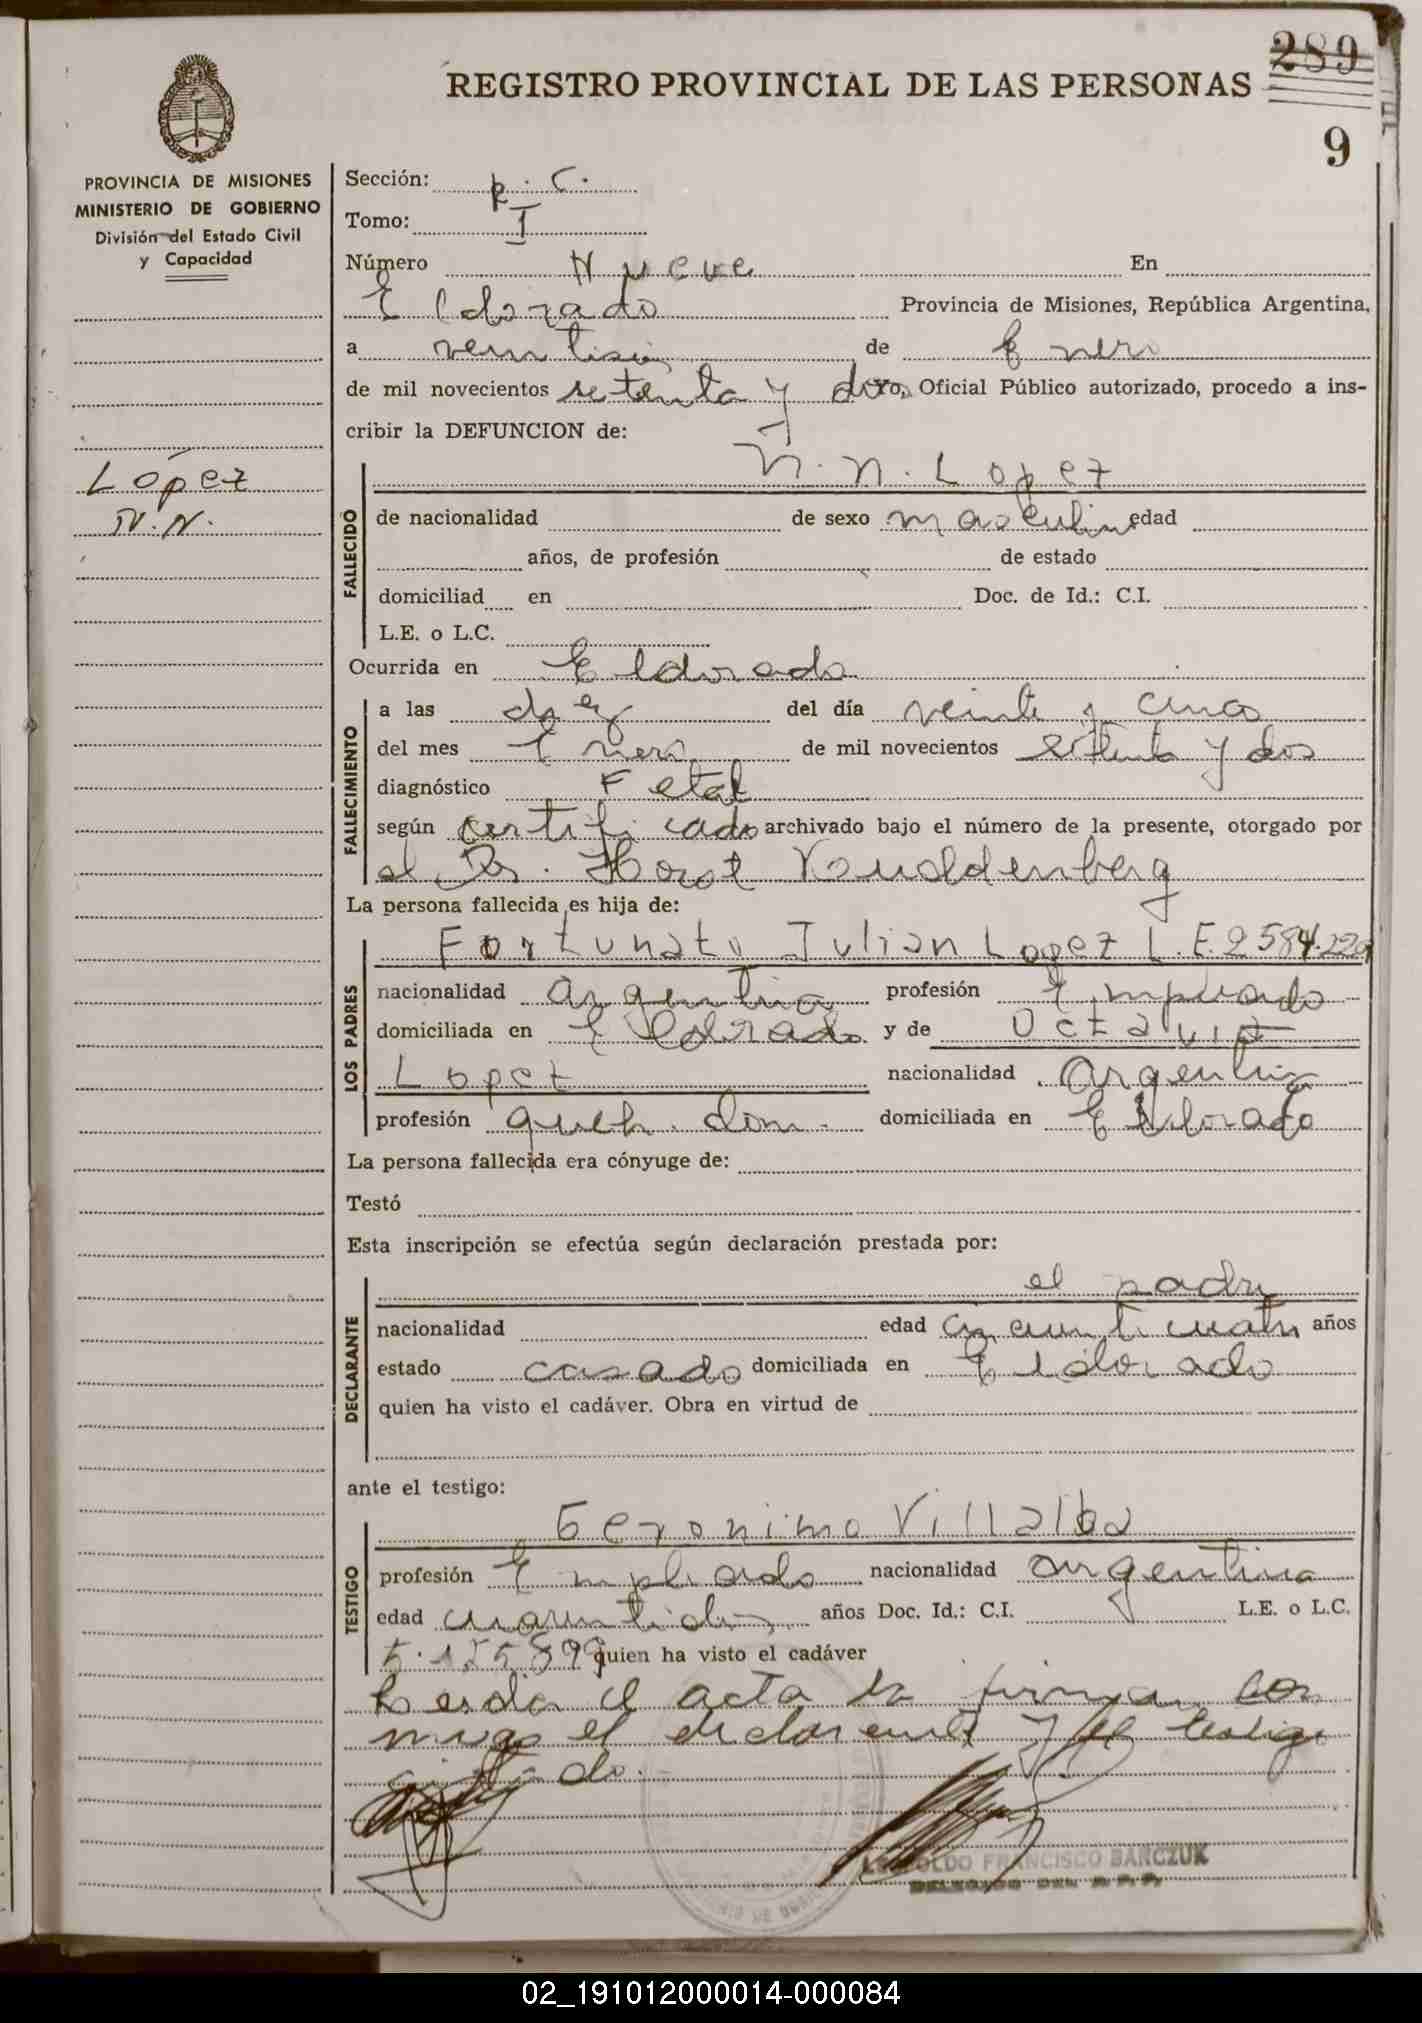 289
REGISTRO PROVINCIAL DE LAS PERSONAS
9
PROVINCIA DE MISIONES
MINISTERIO DE GOBIERNO
División del Estado Civil
y Capacidad
López
N. N.
Sección: R. C.
Tomo: I
Número Nueve En
Eldorado Provincia de Misiones, República Argentina,
a de Enero
de mil novecientos setenta y dos yo, Oficial Público autorizado, procedo a ins-
cribir la DEFUNCION de:
N. N. Lopez
FALLECIDO
de nacionalidad de sexo masculino edad
años, de profesión de estado
domiciliad en Doc. de Id.: C.I.
L.E. o L.C.
Ocurrida en Eldorado
FALLECIMIENTO
a las diez del día veinte y cinco
del mes Enero de mil novecientos setenta y dos
diagnóstico Fetal
según certificado archivado bajo el número de la presente, otorgado por
el Dr. Horst
La persona fallecida es hija de:
LOS PADRES
Fortunato Julian Lopez L.E. 2584.220
nacionalidad argentina profesión Empleado
domiciliada en Eldorado y de Octavia
Lopez nacionalidad Argentina
profesión queh. dom. domiciliada en Eldorado
La persona fallecida era cónyuge de:
Testó
Esta inscripción se efectúa según declaración prestada por:
DECLARANTE
el padre
nacionalidad edad años
estado casado domiciliada en Eldorado
quien ha visto el cadáver. Obra en virtud de
ante el testigo:
TESTIGO
Geronimo Villalba
profesión Empleado nacionalidad argentina
edad años Doc. Id.: C.I. L.E. o L.C.
quien ha visto el cadáver
Leida el acta la firman con
migo el declarante y el testigo
citado.
LEOPOLDO FRANCISCO BAÑCZUK
DELEGADO DEL R.P.P.
02_191012000014-000084